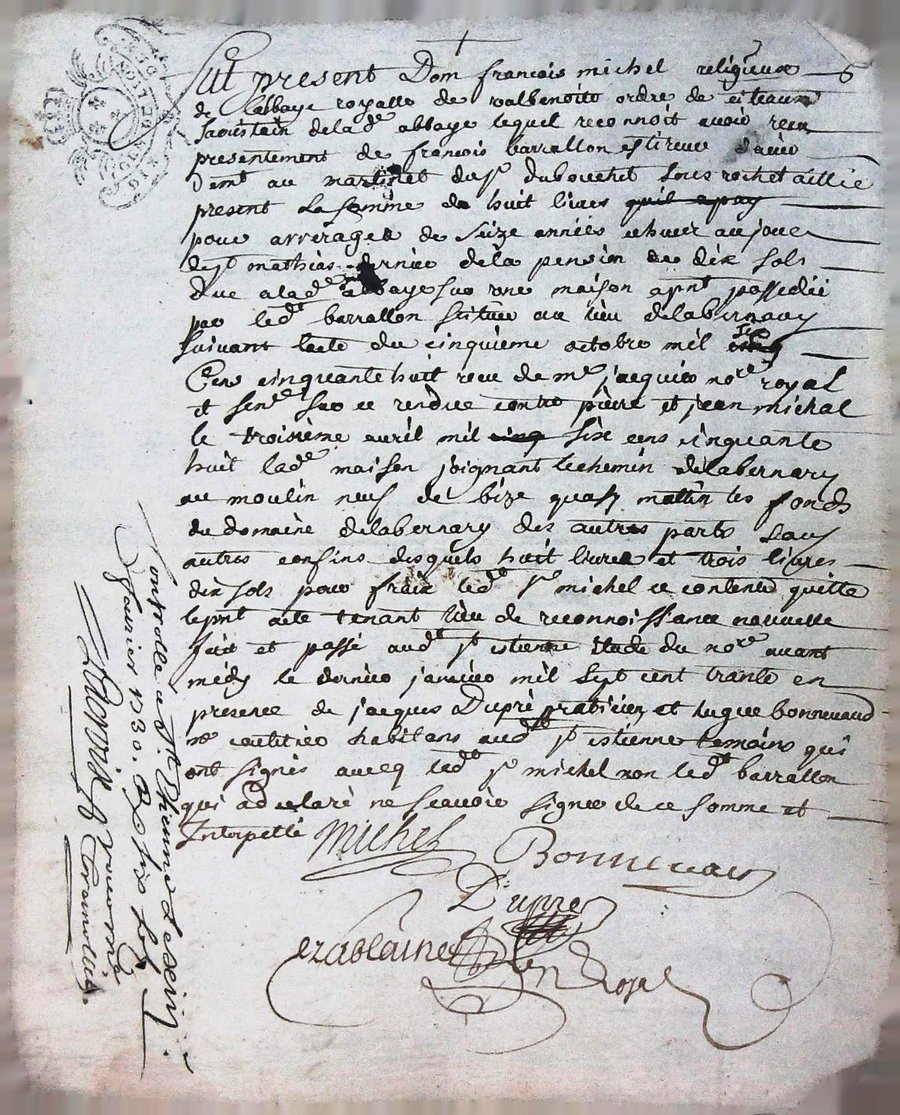 Fut present Dom francois michel religieux
de Labbaye royalle de valbenoite ordre de citeaux
Sacristain delad^e abbaye lequel reconnoit avoir receu
presentement de francois barrallon estireur dacier
dem^t au martinet du s^r dubouchet sous rochetaillie
present La somme de huit livres quil a paÿ
pour arrerages de Seize années echues au jour
de s^t mathias dernier de la pension de dix sols
due a lad^e abbaye sur une maison apnt possedée
par led^t barrallon Scituée au lieu delabernary
suivant lacte du cinquième octobre mil cinq six
Cens cinquante huit receu de m^e jacquier no^re royal
et sen^e sur ce rendue contre pierre et jean michel
le troisième avril mil cinq six cens cinquante
huit lad^e maison joignant le chemin delabernary
au moulin neuf de bize quasy mattin les fonds
du domaine delabernary des autres parts sauf
autres confins desquels huit livres et trois livres
dix sols pour fraix led^t s^r michel ce contente quitte
le pnt acte tenant lieu de reconnoissance nouvelle
fait et passé aud^t s^t estienne Etude du no^re avant
midy le dernier janvier mil sept cent trante en
presence de jacques Dupré praticien et hugue bonnevaud
m^e coutelier habitans aud^t s^t estienne temoins qui
ont signés avecq led^t s^r michel non led^t barrallon
qui a déclaré ne scavoir signer de ce sommé et
Interpellé
Michel
Bonnevaud
Dupré
ezablaine
n^re Royal
Controllé a S^t Etienne Le
fevrier 1730. R